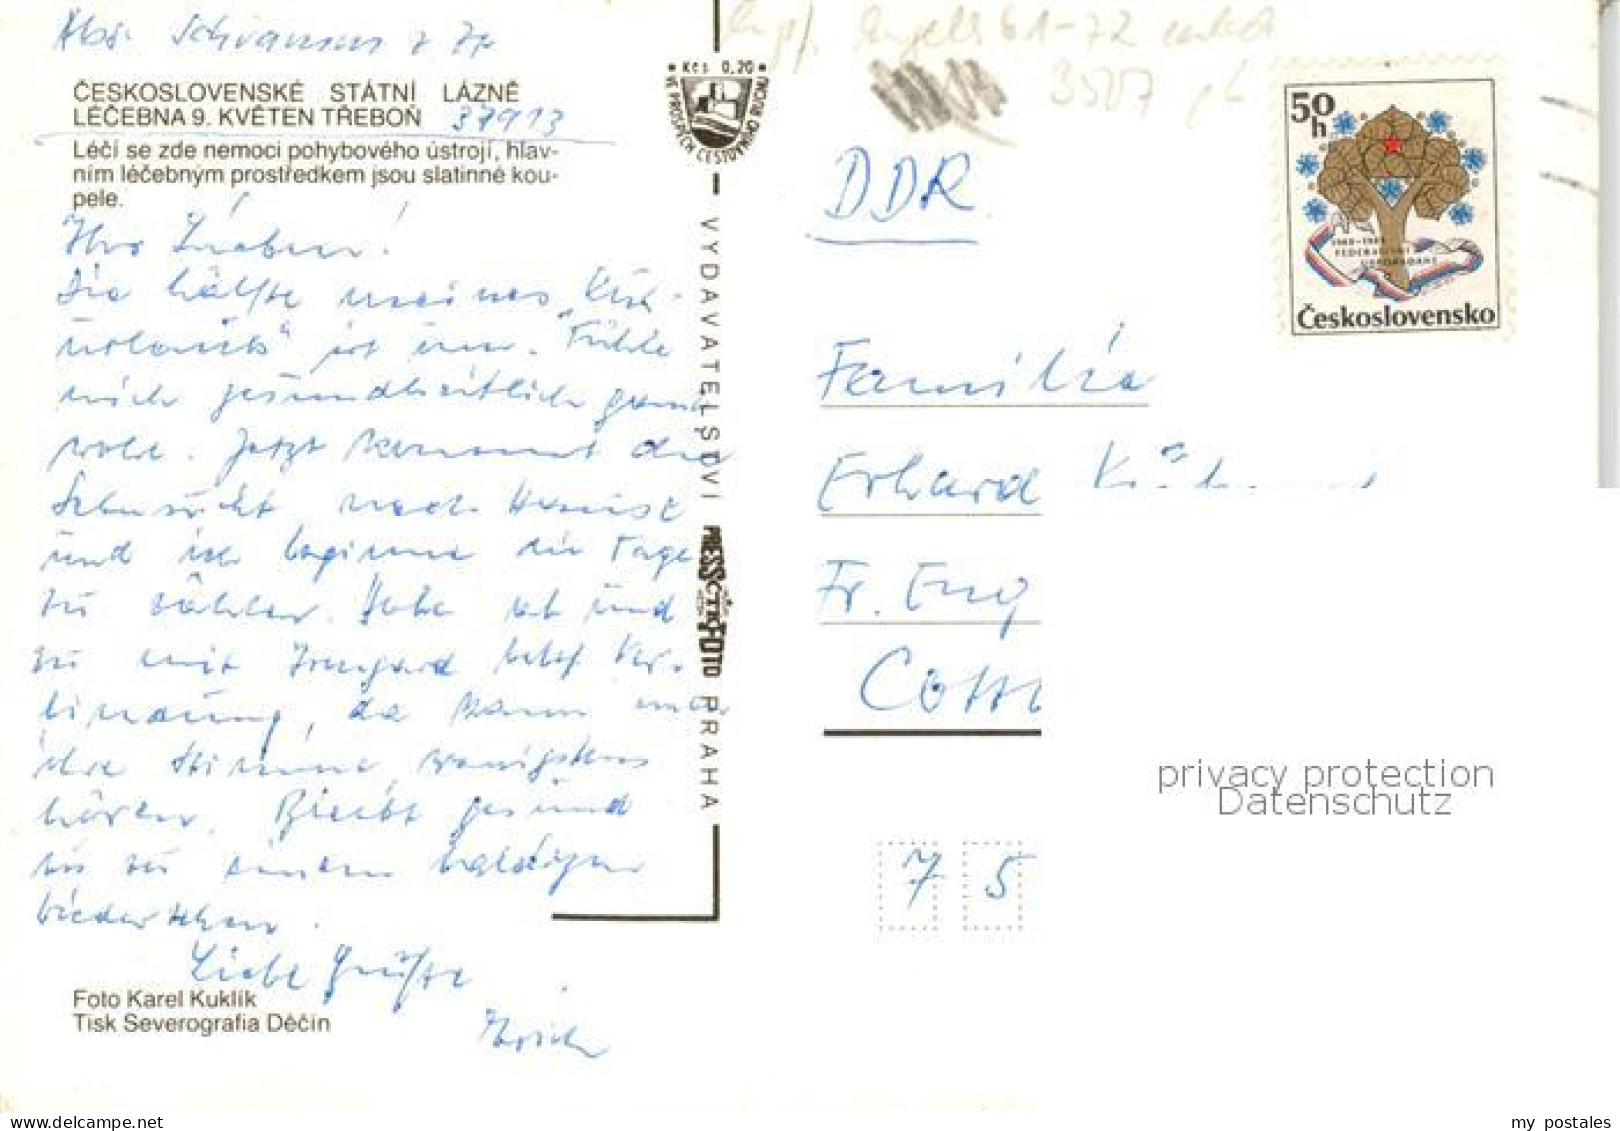 ČESKOSLOVENSKÉ STÁTNÍ LÁZNĚ
LÉČEBNA 9. KVĚTEN TŘEBOŇ 37913
Léčí se zde nemoci pohybového ústrojí, hlav-
ním léčebným prostředkem jsou slatinné kou-
pele.
Ihr Lieben!
Die Hälfte meines „Kur-
urlaubs“ ist um. Fühle
mich gesundheitlich
wohl. Jetzt kommt die
Sehnsucht nach
und ich beginne die Tage
zu zählen. Habe ab und
zu mit Irmgard telef. Ver-
bindung, da kann man
ihre Stimme wenigstens
hören. Bleibt gesund
bis zu einem baldigen
Wiedersehen.
Liebe Grüße
Foto Karel Kuklík
Tisk Severografia Děčín
Kčs 0,20
VE PROSPĚCH ČESTOVNÍHO RUCHU
VYDAVATELSTVÍ PRESSFOTO PRAHA
61-72
3507
50h
1968-1988
Československo
DDR
Familie
Erhard
Fr. Eng
Cott
privacy protection
Datenschutz
7 5
delcampe.net
my_postales